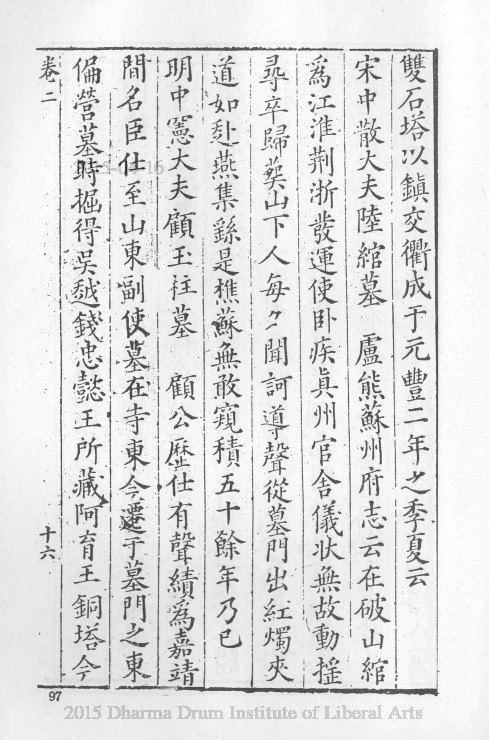 雙石塔以鎮交衢成于元豐二年之季夏云
宋中散大夫陸綰墓　盧熊蘇州府志云在破山綰
為江淮荆浙發運使卧疾真州官舍儀狀無故動揺
尋卒歸葬山下人每々聞訶導聲從墓門出紅燭夾
道如赴燕集繇是樵蘇無敢窺積五十餘年乃已
明中憲大夫顧玉柱墓　顧公歷仕有聲績爲嘉靖
間名臣仕至山東副使墓在寺東今遷于墓門之東
偏營墓時掘得吳越錢忠懿王所藏阿育王銅塔今
卷二
十六
97
2015 Dharma Drum Institute of Liberal Arts